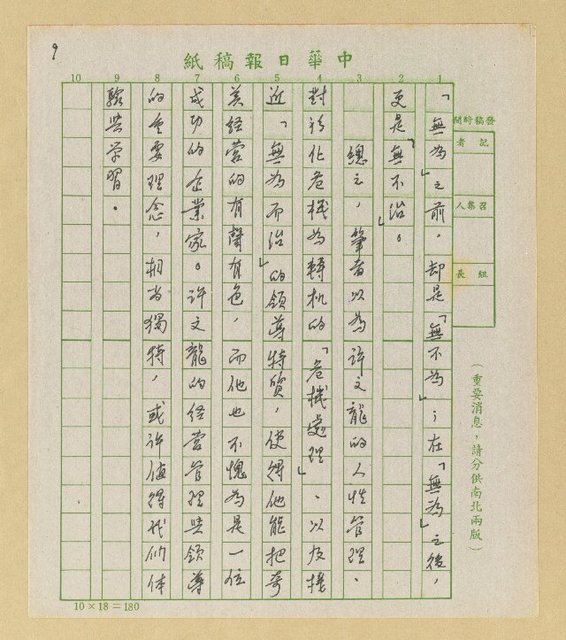 9
中華日報稿紙
發稿時間
記者
召集人
組長
（重要消息，請分供南北兩版）
1 2 3 4 5 6 7 8 9 10
「無為」之前，却是「無不為」；在「無為」之後，
更是「無不治」。
總之，筆者以為許文龍的人性管理、
對待化危機為轉机的「危機處理」、以及接
近「無為而治」的領導特質，使得他能把奇
美經營的有聲有色，而他也不愧為是一位
成功的企業家。許文龍的經營管理與領導
的重要理念，相當獨特，或許值得我们体
驗與学習。
10×18＝180